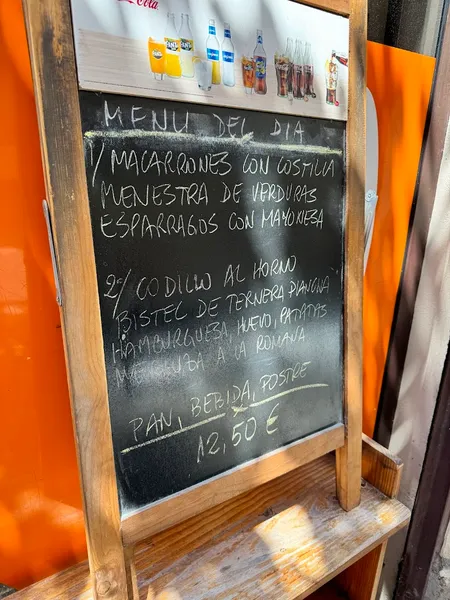 Cola
MENU DEL DIA
1/ MACARRONES CON COSTILLA
MENESTRA DE VERDURAS
ESPARRAGOS CON MAYONESA
2/ CODILLO AL HORNO
BISTEL DE TERNERA PLANCHA
HAMBURGUESA, HUEVO, PATATAS
MERLUZA A LA ROMANA
PAN, BEBIDA, POSTRE
12,50 €